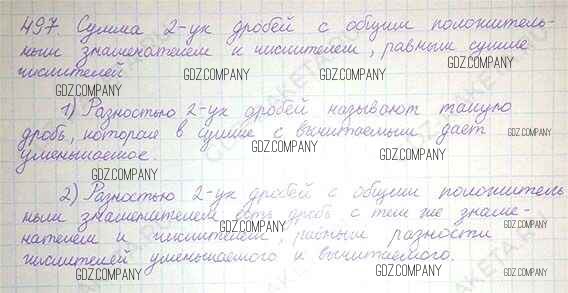 497. Сумма 2-ух дробей с общим положитель-
ным знаменателем и числителем, равным сумме
числителей
GDZ.COMPANY GDZ.COMPANY GDZ.COMPANY
1) Разностью 2-ух дробей называют такую
дробь, которая в сумме с вычитаемым дает
GDZ.COMPANY GDZ.COMPANY
уменьшаемое.
GDZ.COMPANY GDZ.COMPANY
2) Разностью 2-ух дробей с общим положитель
GDZ.COMPANY GDZ.COMPANY
ным знаменателем есть дробь с тем же знаме-
GDZ.COMPANY GDZ.COMPANY
нателем и числителем, равным разности
числителей уменьшаемого и вычитаемого.
GDZ.COMPANY GDZ.COMPANY GDZ.COMPANY